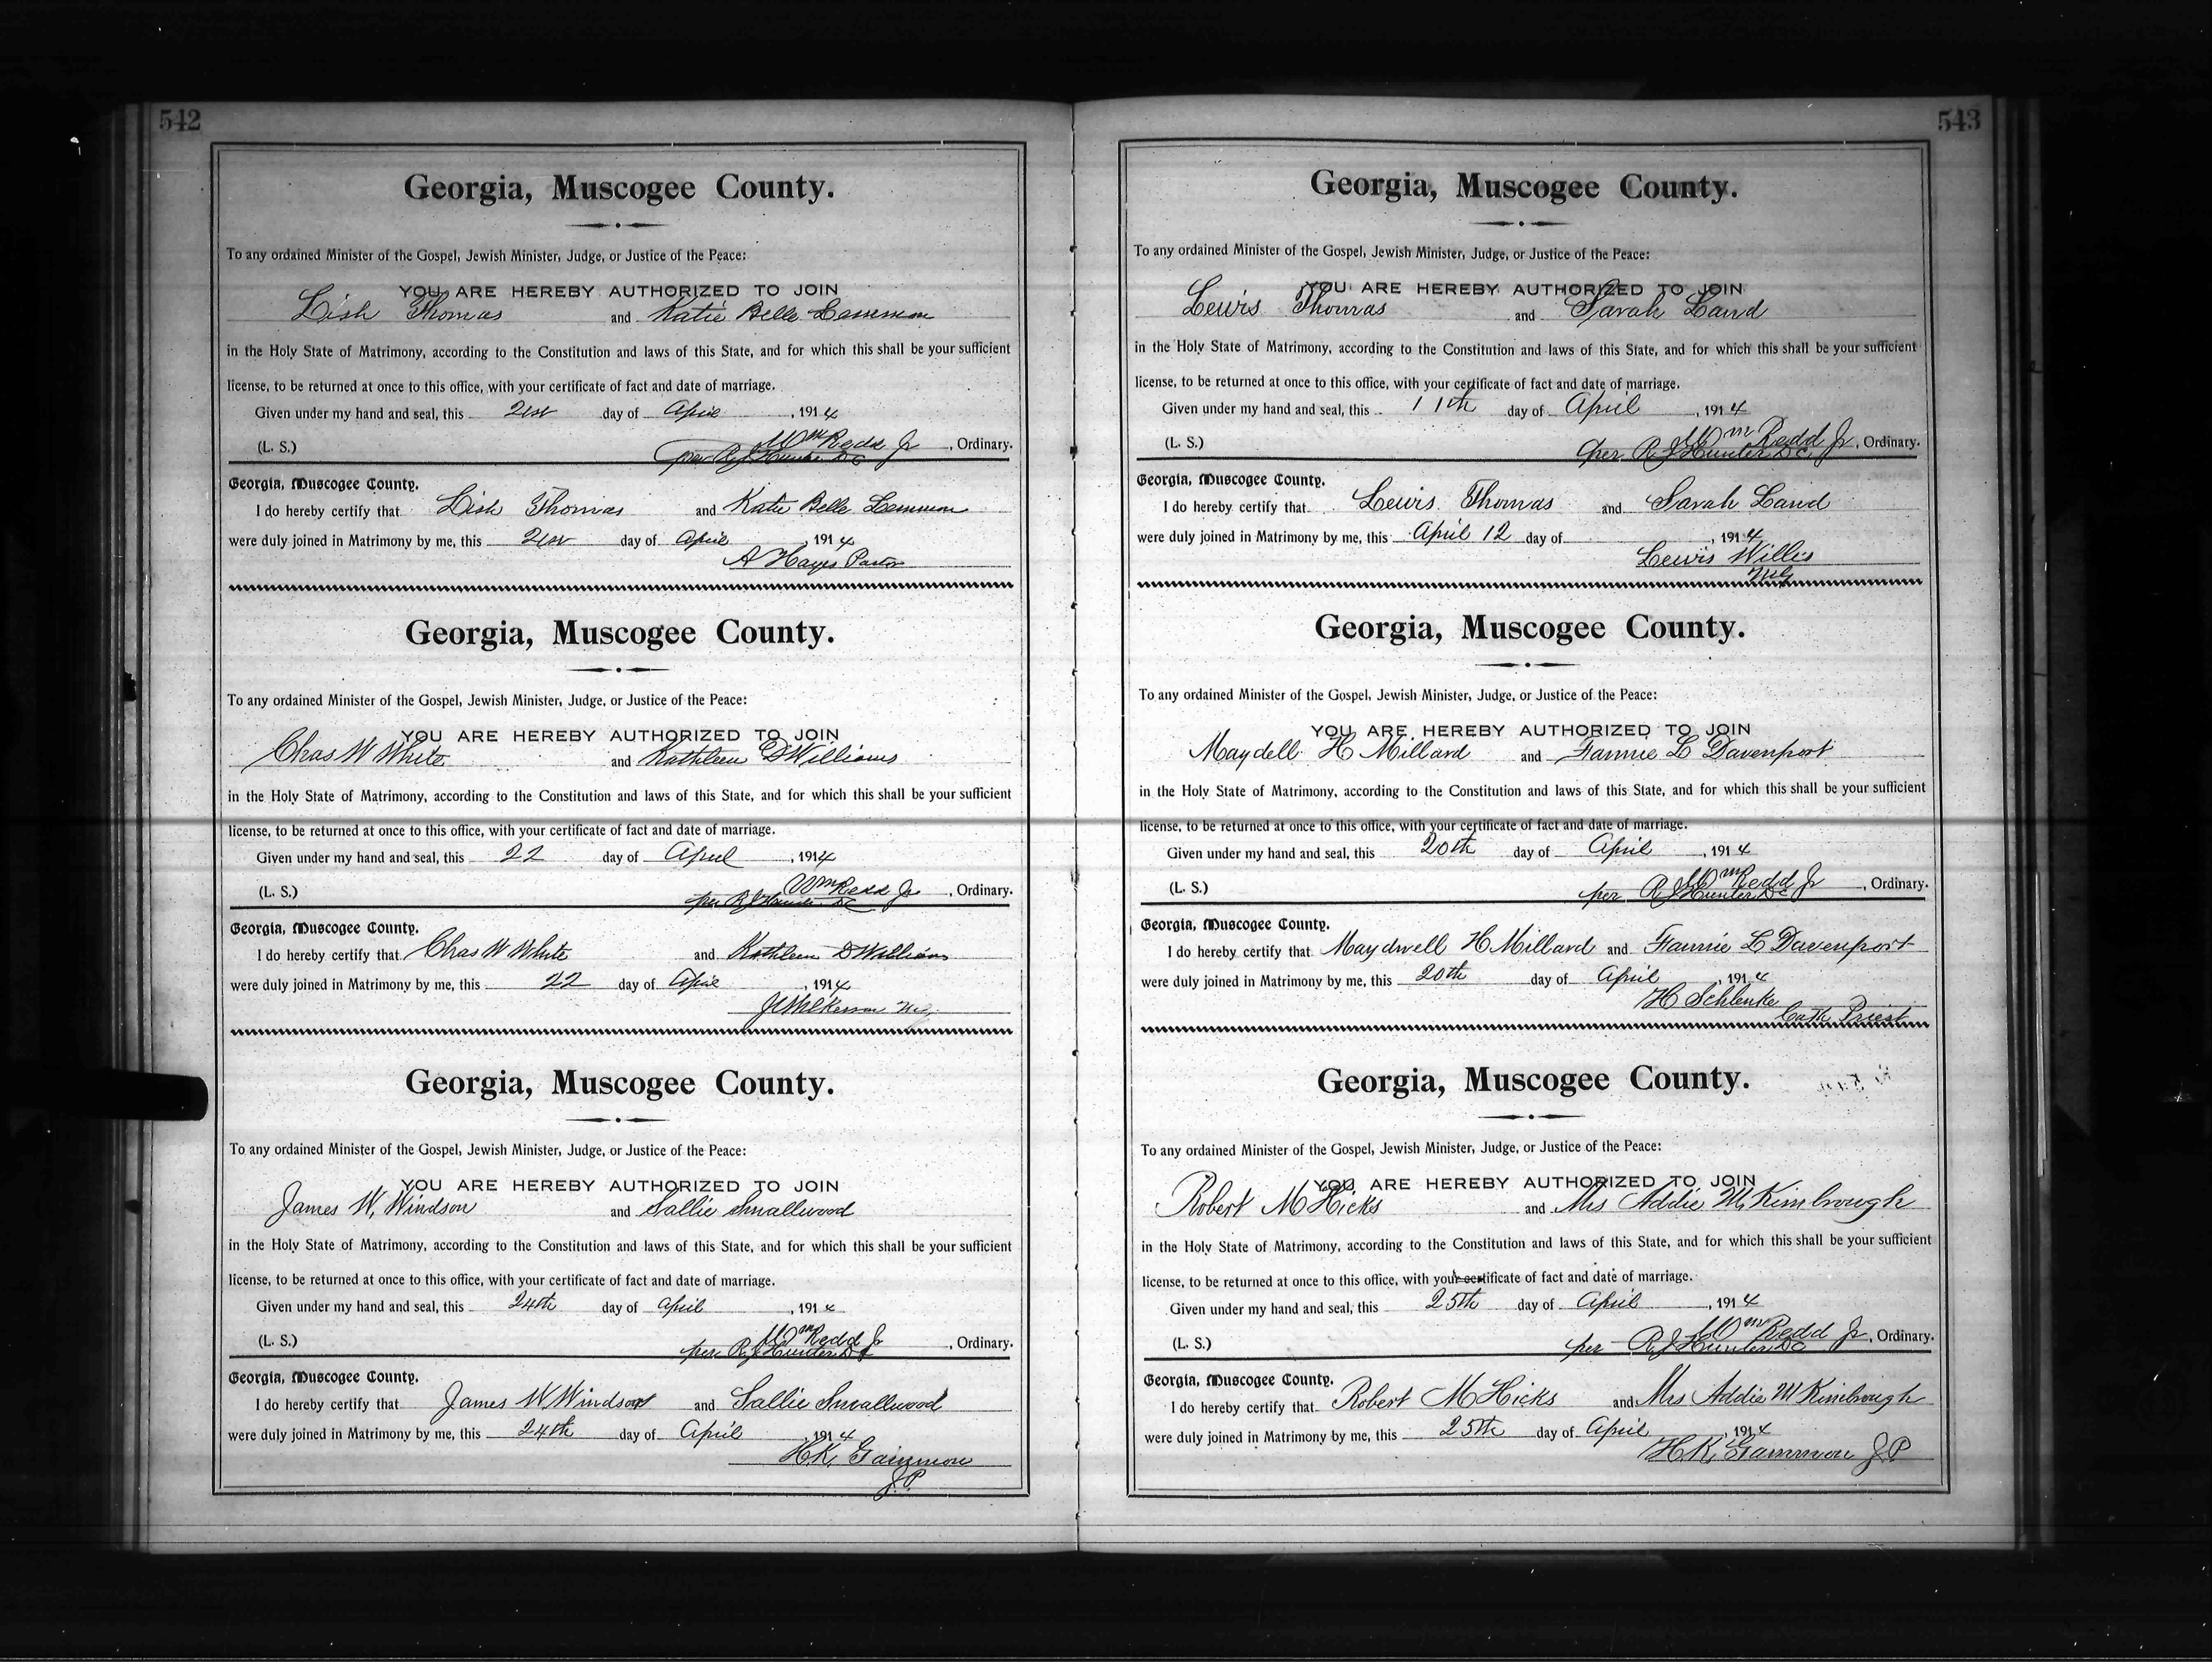 542
Georgia, Muscogee County.
To any ordained Minister of the Gospel, Jewish Minister, Judge, or Justice of the Peace:
YOU ARE HEREBY AUTHORIZED TO JOIN
Lish Thomas and Katie Belle Lemmon
in the Holy State of Matrimony, according to the Constitution and laws of this State, and for which this shall be your sufficient
license, to be returned at once to this office, with your certificate of fact and date of marriage.
Given under my hand and seal, this 21st day of April, 1914
(L. S.) Wm Redd Jr, Ordinary.
per R J Hunter DC
Georgia, Muscogee County.
I do hereby certify that Lish Thomas and Katie Belle Lemmon
were duly joined in Matrimony by me, this 21st day of April, 1914
A Hayes Pastor
Georgia, Muscogee County.
To any ordained Minister of the Gospel, Jewish Minister, Judge, or Justice of the Peace:
YOU ARE HEREBY AUTHORIZED TO JOIN
Chas W White and Kathleen D Williams
in the Holy State of Matrimony, according to the Constitution and laws of this State, and for which this shall be your sufficient
license, to be returned at once to this office, with your certificate of fact and date of marriage.
Given under my hand and seal, this 22 day of April, 1914
(L. S.) Wm Redd Jr, Ordinary.
per R J Hunter DC
Georgia, Muscogee County.
I do hereby certify that Chas W White and Kathleen D Williams
were duly joined in Matrimony by me, this 22 day of April, 1914
Wilkerson
Georgia, Muscogee County.
To any ordained Minister of the Gospel, Jewish Minister, Judge, or Justice of the Peace:
YOU ARE HEREBY AUTHORIZED TO JOIN
James W. Windson and Sallie Smallwood
in the Holy State of Matrimony, according to the Constitution and laws of this State, and for which this shall be your sufficient
license, to be returned at once to this office, with your certificate of fact and date of marriage.
Given under my hand and seal, this 24th day of April, 1914
(L. S.) Wm Redd Jr, Ordinary.
per R J Hunter DC
Georgia, Muscogee County.
I do hereby certify that James W Windsor and Sallie Smallwood
were duly joined in Matrimony by me, this 24th day of April, 1914
H.K. Gammon
J.P.
543
Georgia, Muscogee County.
To any ordained Minister of the Gospel, Jewish Minister, Judge, or Justice of the Peace:
YOU ARE HEREBY AUTHORIZED TO JOIN
Lewis Thomas and Sarah Land
in the Holy State of Matrimony, according to the Constitution and laws of this State, and for which this shall be your sufficient
license, to be returned at once to this office, with your certificate of fact and date of marriage.
Given under my hand and seal, this 11th day of April, 1914
(L. S.) Wm Redd Jr, Ordinary.
per R J Hunter DC
Georgia, Muscogee County.
I do hereby certify that Lewis Thomas and Sarah Land
were duly joined in Matrimony by me, this April 12 day of , 1914
Lewis Willis
MG
Georgia, Muscogee County.
To any ordained Minister of the Gospel, Jewish Minister, Judge, or Justice of the Peace:
YOU ARE HEREBY AUTHORIZED TO JOIN
Maydell H Millard and Fannie L Davenport
in the Holy State of Matrimony, according to the Constitution and laws of this State, and for which this shall be your sufficient
license, to be returned at once to this office, with your certificate of fact and date of marriage.
Given under my hand and seal, this 20th day of April, 1914
(L. S.) Wm Redd Jr, Ordinary.
per R J Hunter DC
Georgia, Muscogee County.
I do hereby certify that Maydwell H Millard and Fannie L Davenport
were duly joined in Matrimony by me, this 20th day of April, 1914
H Schlenke
Cath Priest
Georgia, Muscogee County.
To any ordained Minister of the Gospel, Jewish Minister, Judge, or Justice of the Peace:
YOU ARE HEREBY AUTHORIZED TO JOIN
Robert M Hicks and Mrs Addie M Kimbrough
in the Holy State of Matrimony, according to the Constitution and laws of this State, and for which this shall be your sufficient
license, to be returned at once to this office, with your certificate of fact and date of marriage.
Given under my hand and seal, this 25th day of April, 1914
(L. S.) Wm Redd Jr, Ordinary.
per R J Hunter DC
Georgia, Muscogee County.
I do hereby certify that Robert M Hicks and Mrs Addie M Kimbrough
were duly joined in Matrimony by me, this 25th day of April, 1914
H.K. Gammon J P